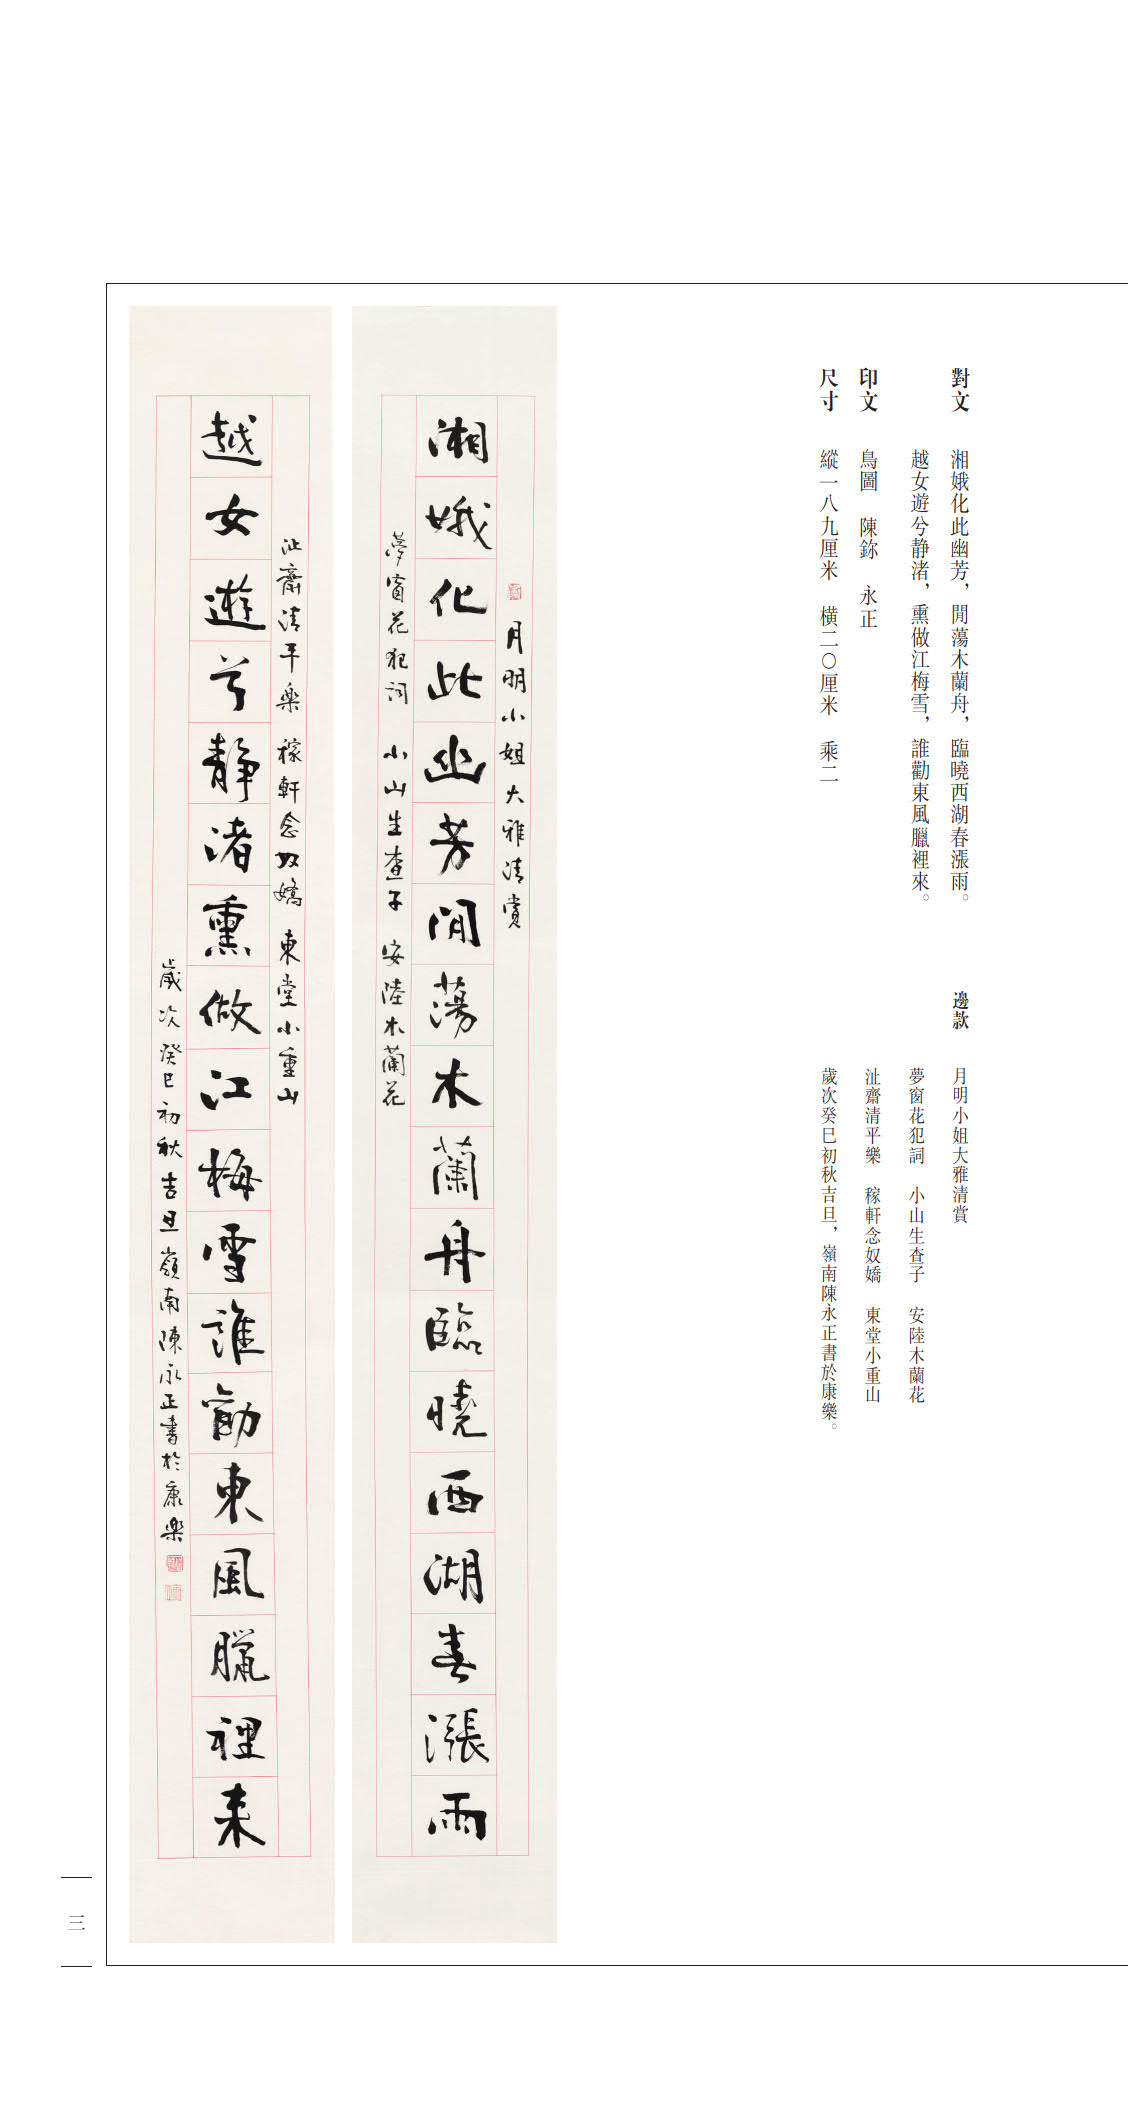 對文 湘娥化此幽芳，閒蕩木蘭舟，臨曉西湖春漲雨。
越女遊兮静渚，熏做江梅雪，誰勸東風臘裡來。
印文 鳥圖 陳鉨 永正
尺寸 縱一八九厘米 橫二〇厘米 乘二
邊款 月明小姐大雅清賞
夢窗花犯詞 小山生查子 安陸木蘭花
沚齋清平樂 稼軒念奴嬌 東堂小重山
歲次癸巳初秋吉旦，嶺南陳永正書於康樂。
月明小姐大雅清賞
湘娥化此幽芳閒蕩木蘭舟臨曉西湖春漲雨
夢窗花犯詞 小山生查子 安陸木蘭花
沚齋清平樂 稼軒念奴嬌 東堂小重山
越女遊兮静渚熏做江梅雪誰勸東風臘裡来
歲次癸巳初秋吉旦嶺南陳永正書於康樂
三